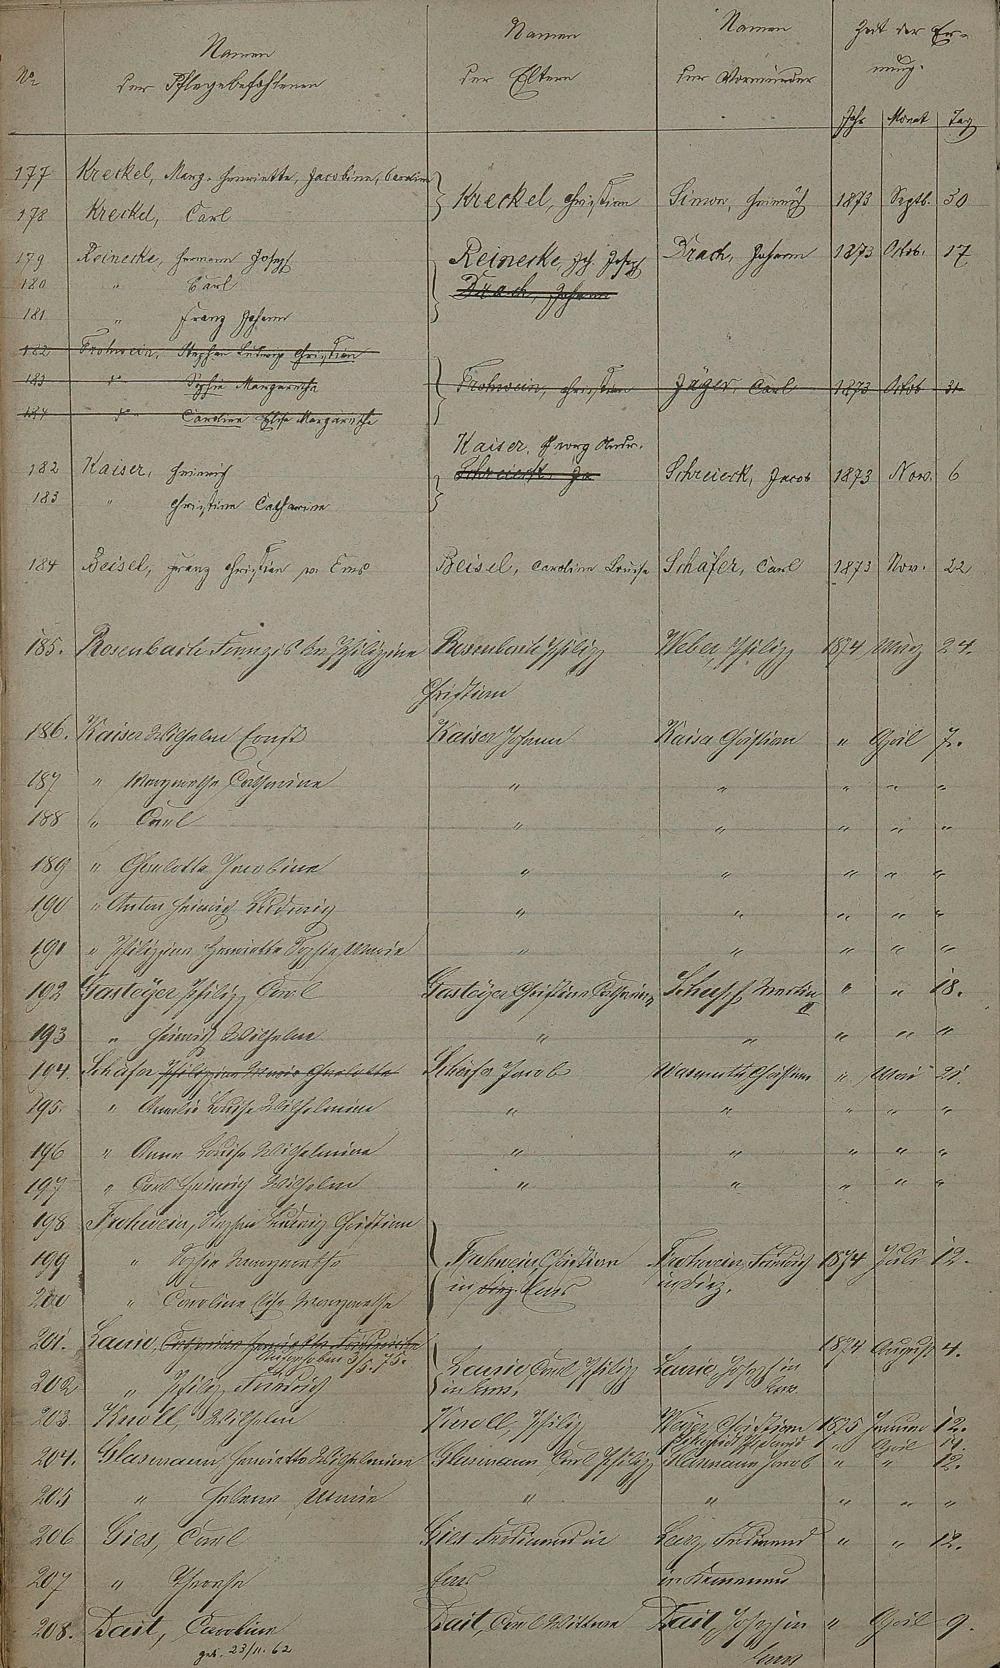 No.
Namen der Pflegebefohlenen
Namen der Eltern
Namen der Vormünder
Zeit der Er-
nung.
Jahr Monat Tag
177 Kreckel, Marg. Henriette, Jacobine, Caroline
178 Kreckel, Carl } Kreckel, Christian Simon, Heinrich 1873 Septb. 30
179 Reinecke, Hermann Joseph Reinecke, Joh. Joseph Drach, Johann 1873 Octob. 17
180 " Carl Drach, Johann
181 " Franz Johann
182 Frohwein, Stephan Ludwig Christian
183 " Sophie Margaretha Frohwein, Christian Jäger, Carl 1873 Octob 31
184 " Caroline Elise Margarethe
Kaiser, Georg Andr.
182 Kaiser, Heinrich Schreieck, Ja Schreieck, Jacob 1873 Nov. 6
183 " Christine Catharine
184 Beisel, Franz Christian v. Ems Beisel, Caroline Louise Schäfer, Carl 1873 Nov. 22
185. Rosenbach Philippine Rosenbach Philipp Weber, Philipp 1874 März 24.
Christian
186. Kaiser Wilhelm Ernst Kaiser Johann Kaiser Christian " April 7.
187 " Margarethe Catharine " " " " "
188 " Carl " " " " "
189 " Charlotte Jacobine " " " " "
190 " Anton Heinrich Ludwig " " " " "
191 " Philippine Henriette Sophie Marie " " " " "
192 Gasteyer Philipp Carl Gasteyer Christine Catharine Martin " " 18.
II
193 " Heinrich Wilhelm " " " " "
194. Schäfer Philippine Marie Charlotte Schäfer Jacob Christian " Mai 21.
195. " Amalie Louise Wilhelmine " " " " "
196 " Anna Louise Wilhelmine " " " " "
197 " Carl Heinrich Wilhelm " " " " "
198 Frohwein, Stephan Ludwig Christian
199 " Sophie Margaretha Frohwein, Christian Frohwein, Friedrich 1874 Juli 12.
in Diez. Ems in Diez.
200 " Caroline Elise Margarethe
201. Laurie, Henriette 1874 August 4.
Aufgehoben 5/5. 75.
202 " Philipp Friedrich Laurie Carl Philipp Laurie, Joseph in
in Ems. Ems
203 Knoll Wilhelm Knoll, Philipp Christian 1875 Januar 12.
" April 14.
204. Glasmann, Henriette Wilhelmine Glasmann, Carl Philipp Glasmann Jacob " " 12.
205 " Helene Marie " " " " "
206 Gies, Carl Gies Ferdinand in Ferdinand " " 12.
207 " Therese Ems in
208. Dait, Caroline Dait, Carl Wittwe Dait, Joseph in " April 9.
geb. 23/11. 62 Ems